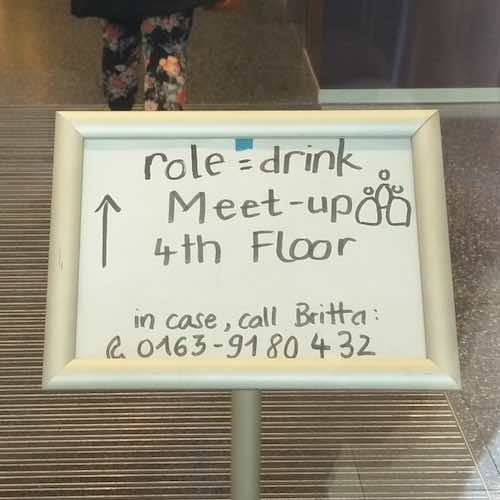 role = drink
Meet-up
4th Floor
in case, call Britta:
0163-9180432